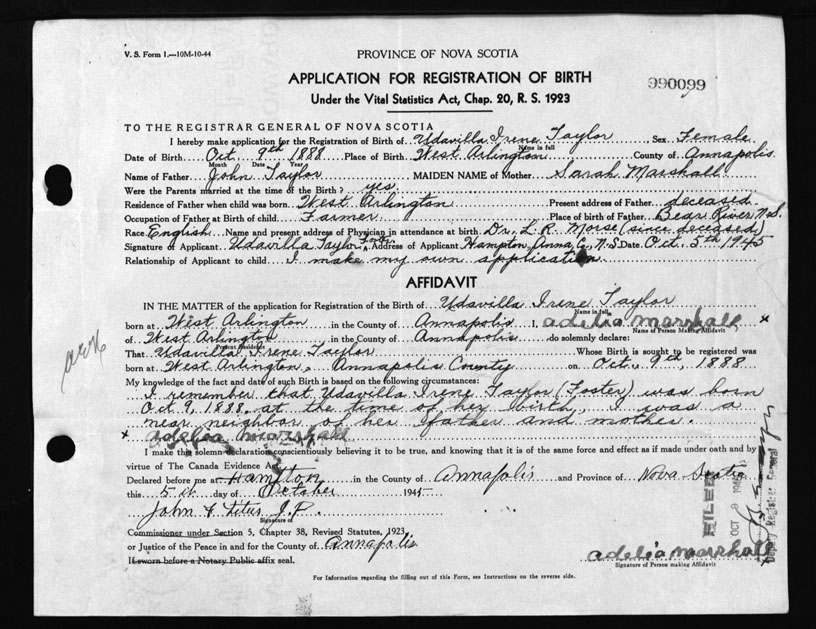 V. S. Form 1.—10M-10-44
PROVINCE OF NOVA SCOTIA
APPLICATION FOR REGISTRATION OF BIRTH
990099
Under the Vital Statistics Act, Chap. 20, R. S. 1923
TO THE REGISTRAR GENERAL OF NOVA SCOTIA
I hereby make application for the Registration of Birth of Udavilla Irene Taylor Sex Female
Name in full
Date of Birth Oct. 9th 1888 Place of Birth West Arlington County of Annapolis
Month Date Year
Name of Father John Taylor MAIDEN NAME of Mother Sarah Marshall
Were the Parents married at the time of the Birth? yes
Residence of Father when child was born West Arlington Present address of Father deceased
Occupation of Father at Birth of child Farmer Place of birth of Father Bear River N.S.
Race English Name and present address of Physician in attendance at birth Dr. L. R. Morse (since deceased)
Signature of Applicant Udavilla Taylor Foster Address of Applicant Hampton Anna Co, N.S. Date Oct. 5th 1945
Relationship of Applicant to child I make my own application
AFFIDAVIT
IN THE MATTER of the application for Registration of the Birth of Udavilla Irene Taylor
Name in full
born at West Arlington in the County of Annapolis I, adelia marshall x
Name of Person Making Affidavit
of West Arlington in the County of Annapolis do solemnly declare:
Present Residence
That Udavilla Irene Taylor Whose Birth is sought to be registered was
born at West Arlington, Annapolis County on Oct. 9th, 1888
My knowledge of the fact and date of such Birth is based on the following circumstances:
I remember that Udavilla Irene Taylor (Foster) was born
Oct 9, 1888. at the time of her birth, I was a
near neighbor of her father and mother.
x adelia marshall
I make this solemn declaration conscientiously believing it to be true, and knowing that it is of the same force and effect as if made under oath and by
virtue of The Canada Evidence
Declared before me at Hampton in the County of Annapolis and Province of Nova Scotia
this 5th day of October 1945
John E Titus J.P.
Signature of
Commissioner under Section 5, Chapter 38, Revised Statutes, 1923,
or Justice of the Peace in and for the County of Annapolis
If sworn before a Notary Public affix seal.
adelia marshall x
Signature of Person making Affidavit
For Information regarding the filling out of this Form, see Instructions on the reverse side.
FILED
OCT 9 1945
Deputy Registrar General